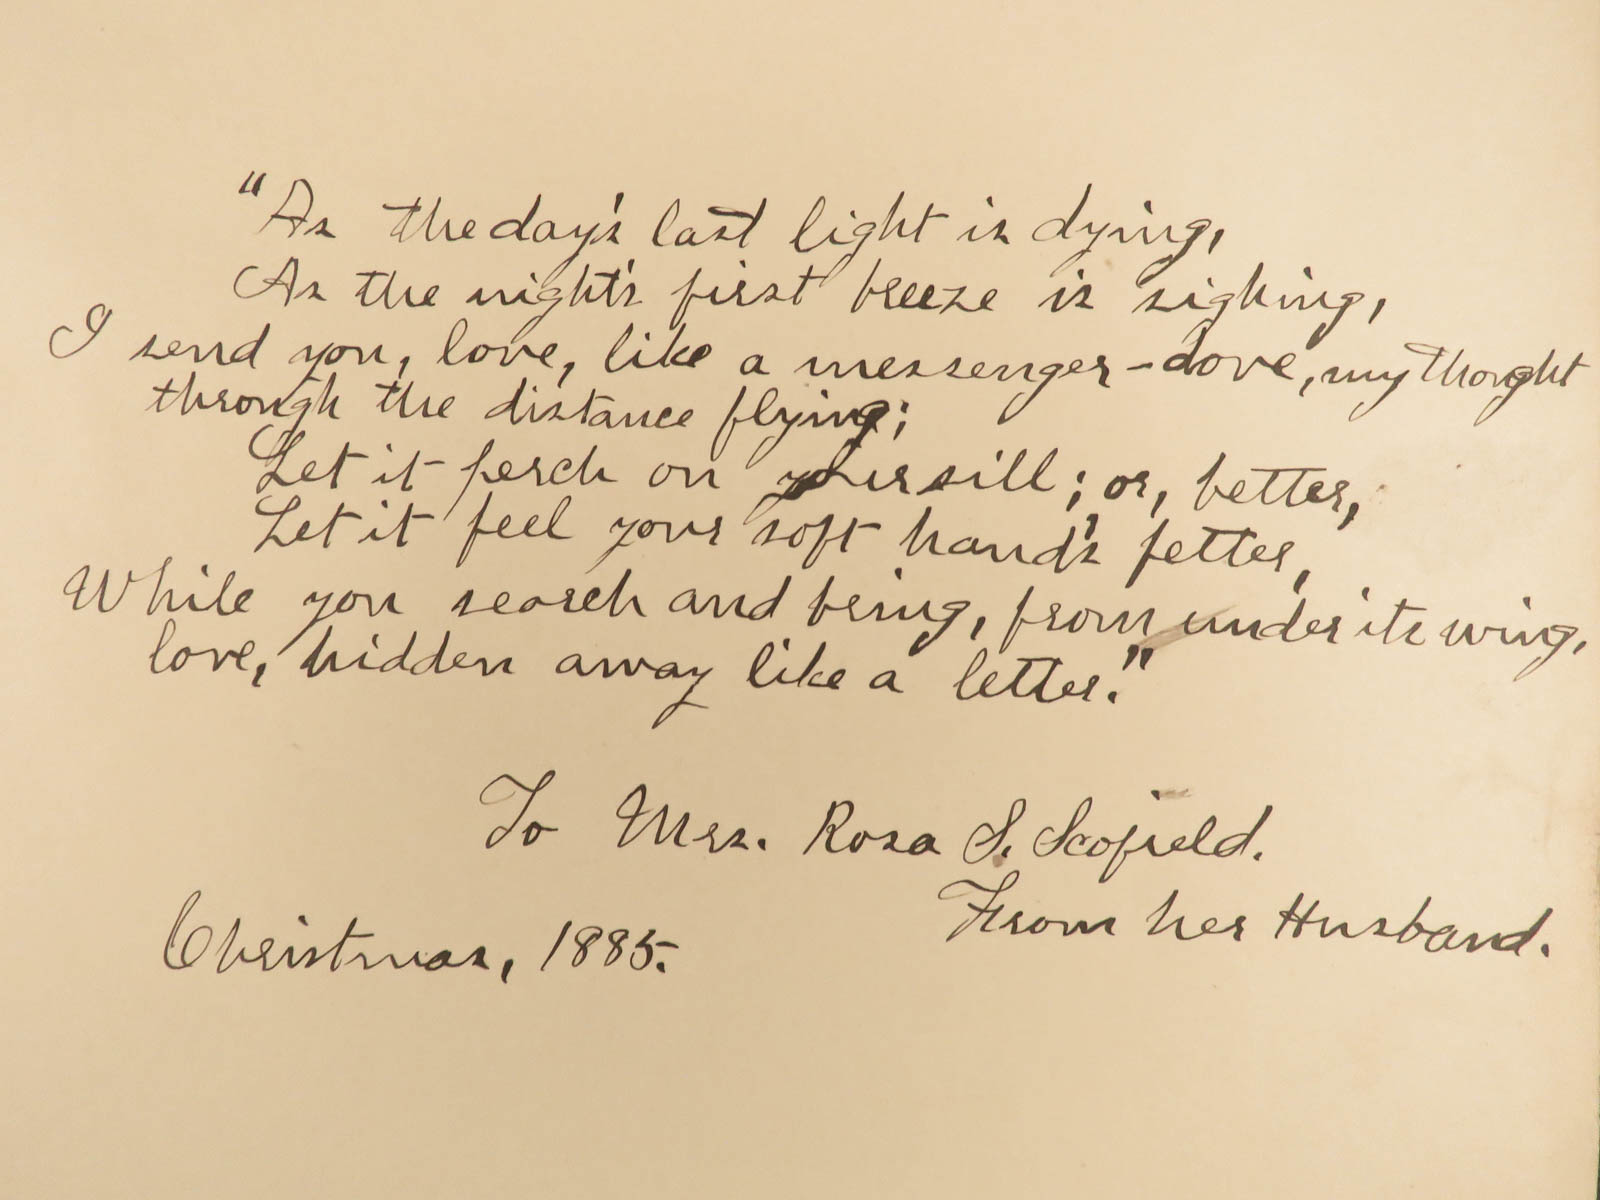 "As the day's last light is dying,
As the night's first breeze is sighing,
I send you, love, like a messenger-dove, my thought
through the distance flying;
Let it perch on your sill; or, better,
Let it feel your soft hand's fetter,
While you search and bring, from under its wing,
love, hidden away like a letter."
To Mrs. Rosa S. Scofield.
From her Husband.
Christmas, 1885.